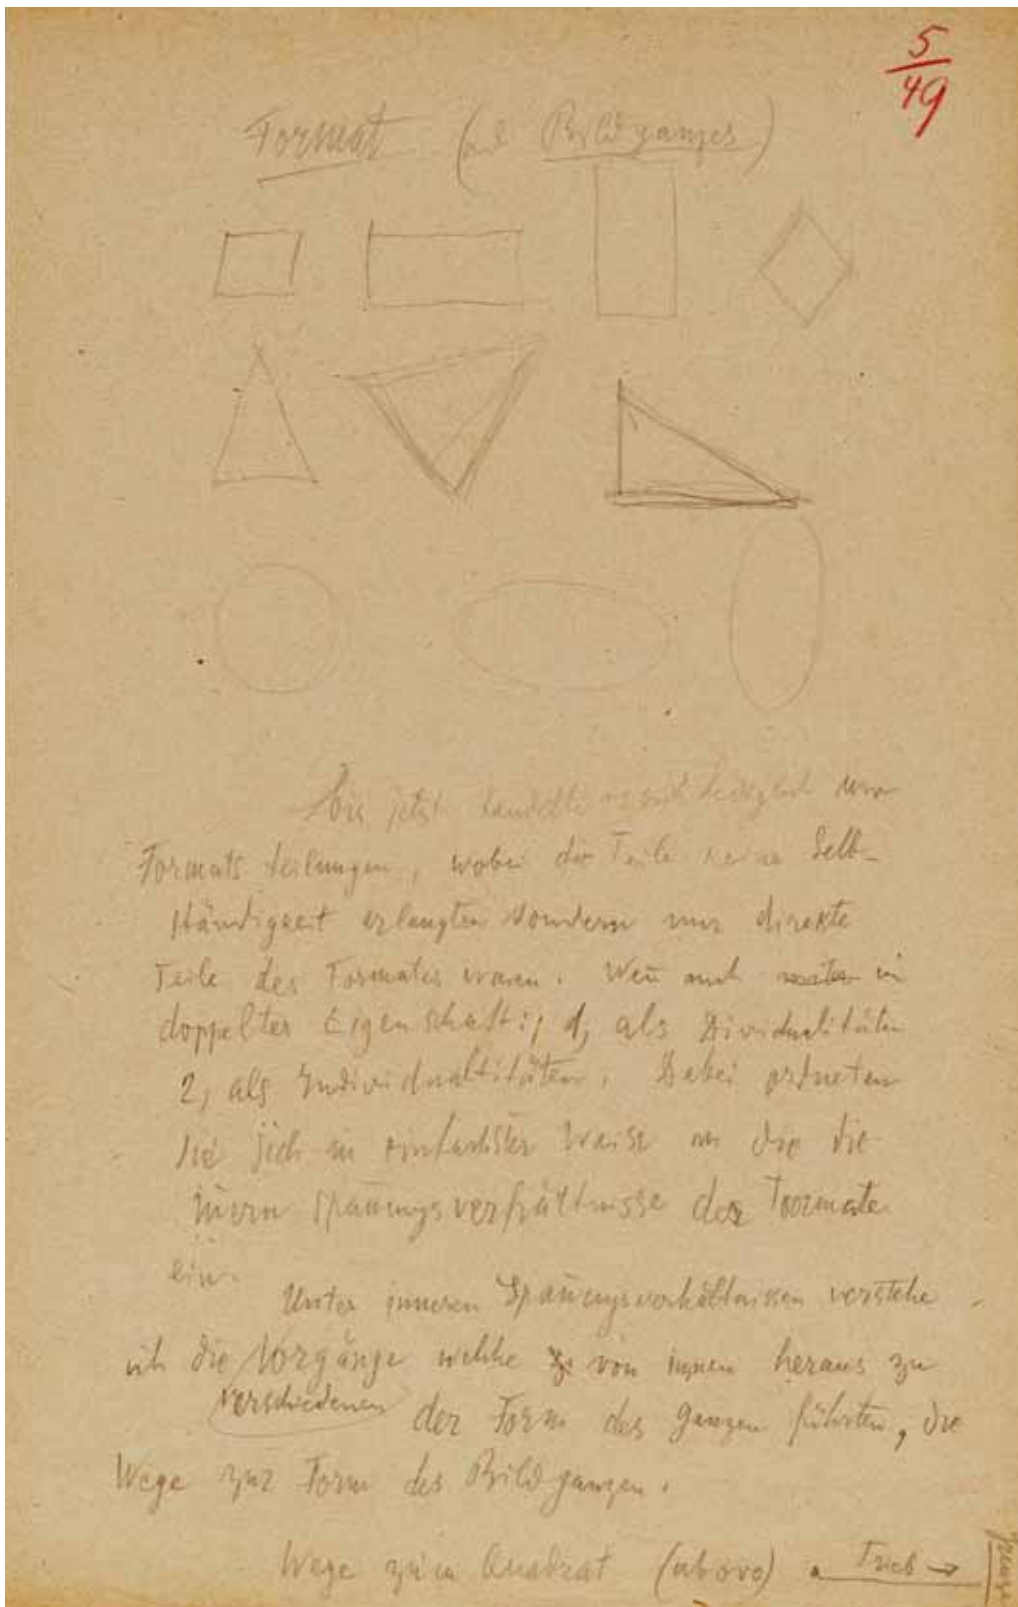 5
49
Format (als Bildganzes)
Bis jetzt handelte es sich lediglich um
Formats teilungen, wobei die Teile keine Selb-
ständigkeit erlangten sondern nur direkte
Teile des Formates waren. Weñ auch in
doppelter Eigenschaft: 1, als Dividualitäten
2, als Individualtitäten. Dabei ordneten
sie sich in einfachster Weise in die die
iñern Spañungsverhältnisse der Formate
ein.
Unter inneren Spañungsverhältnissen verstehe
ich die Vorgänge welche von innen heraus zu
verschiedenen der Form des Ganzen führten, die
Wege zur Form des Bildganzen.
Wege zum Quadrat (ab ovo) Trieb →
Grenze